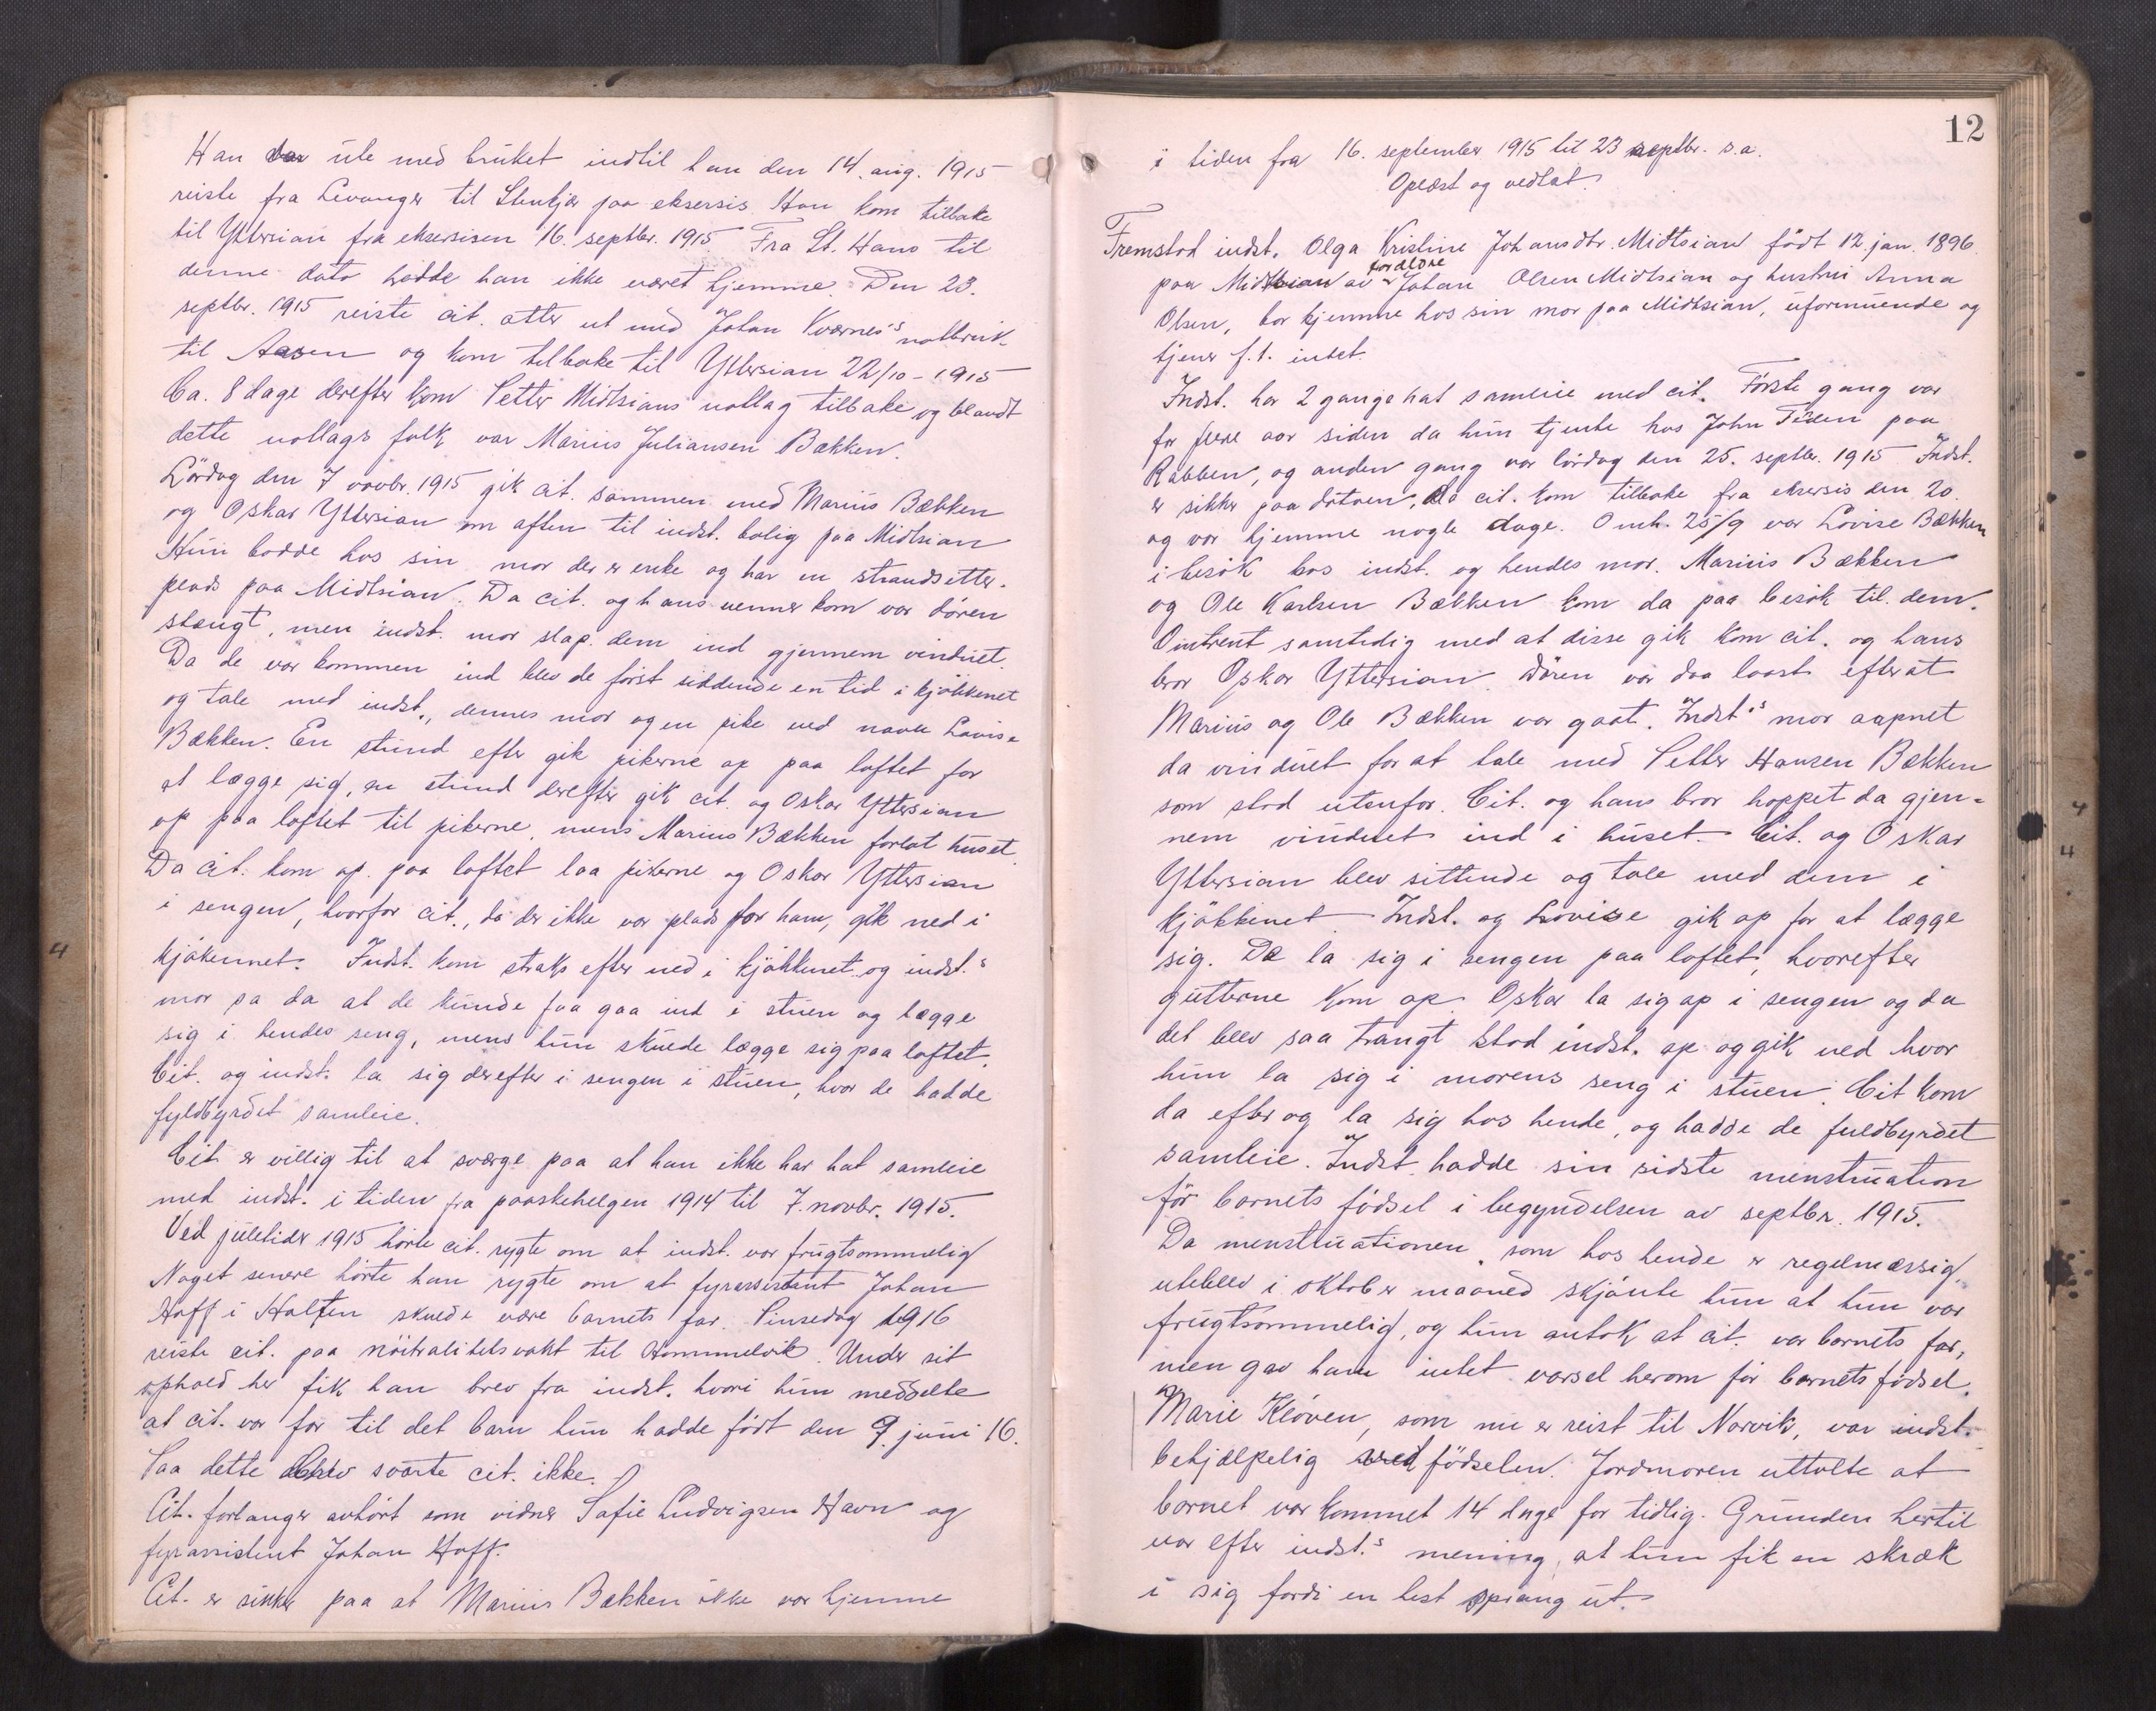 Han var ute med bruket indtil han den 14. aug. 1915
reiste fra Levanger til Stenkjær paa eksersis. Han kom tilbake
til Yttersian fra eksersisen 16. septbr. 1915. Fra St. Hans til
denne dato hadde han ikke været hjemme. Den 23.
septbr. 1915 reiste cit. atter ut med Johan Kværnes's notbruk
til Aasen og kom tilbake til Yttersian 22/10 - 1915
Ca. 8 dage derefter kom Petter Midtsians notlag tilbake og blandt
dette notlags folk var Marius Juliansen Bækken.
Lördag den 7 novbr. 1915 gik cit. sammen med Marius Bækken
og Oskar Yttersian om aften til indst. bolig paa Midtsian
Hun bodde hos sin mor der er enke og har en strandsitter-
plads paa Midtsian. Da cit. og hans venner kom var dören
stængt, men indst. mor slap dem ind gjennem vinduet.
Da de var kommen ind blev de först siddende en tid i kjökkenet
og tale med indst., dennes mor og en pike ved navn Lovise
Bækken. En stund efter gik pikerne op paa loftet for
at lægge sig, en stund derefter gik cit. og Oskar Yttersian
op paa loftet til pikerne, mens Marius Bækken forlot huset.
Da cit. kom op paa loftet laa pikerne og Oskar Yttersian
i sengen, hvorfor cit., da der ikke var plads for ham, gik ned i
kjökennet. Indst. kom straks efter ned i kjökkenet og indst.s
mor sa da at de kunde faa gaa ind i stuen og lægge
sig i hendes seng, mens hun skulde lægge sig paa loftet.
Cit. og indst. la sig derefter i sengen i stuen, hvor de hadde
fuldbyrdet samleie.
Cit er villig til at sværge paa at han ikke har hat samleie
med indst. i tiden fra paaskehelgen 1914 til 7. novbr. 1915.
Ved juletider 1915 hörte cit. rygte om at indst. var frugtsommelig
Noget senere hörte han rygte om at fyrassistent Johan
Hoff i Halten skulde være barnets far. Pinsedag 1916
reiste cit. paa nöitralitetsvakt til Hommelvik. Under sit
ophold her fik han brev fra indst. hvori hun meddelte
at cit. var far til det barn hun hadde födt den 9. juni 16.
Paa dette brev svarte cit. ikke.
Cit. forlanger avhört som vidner Sofie Ludvigsen Havn og
fyrassistent Johan Hoff.
Cit. er sikker paa at Marius Bækken ikke var hjemme
12
i tiden fra 16. september 1915 til 23 septbr. s.a.
Oplæst og vedtat.
Fremstod indst. Olga Kristine Johansdtr. Midtsian födt 12. jan. 1896
paa Midtsian av forældre Johan Olsen Midtsian og hustru Anna
Olsen, bor hjemme hos sin mor paa Midtsian, uformuende og
tjener f.t. intet.
Indst. har 2 gange hat samleie med cit. Förste gang var
for flere aar siden da hun tjente hos John Töien paa
Rabben, og anden gang var lördag den 25. septbr. 1915 Indst.
er sikker paa datoen, da cit. kom tilbake fra eksersis den 20.
og var hjemme nogle dage. Omh. 25/9 var Lovise Bækken
i besök hos indst. og hendes mor. Marius Bækken
og Ole Karlsen Bækken kom da paa besök til dem.
Omtrent samtidig med at disse gik kom cit. og hans
bror Oskar Yttersian. Dören var da laast efterat
Marius og Ole Bækken var gaat. Indst.s mor aapnet
da vinduet for at tale med Petter Hansen Bækken
som stod utenfor. Cit. og hans bror hoppet da gjen-
nem vinduet ind i huset. Cit. og Oskar
Yttersian blev sittende og tale med dem i
kjökkenet. Indst. og Lovise gik op for at lægge
sig. De la sig i sengen paa loftet, hvorefter
gutterne kom op. Oskar la sig op i sengen og da
det blev saa trangt stod indst. op og gik ned hvor
hun la sig i morens seng i stuen. Cit kom
da efter og la sig hos hende, og hadde de fuldbyrdet
samleie. Indst. hadde sin sidste menstruation
för barnets födsel i begyndelsen av septbr. 1915.
Da menstruationen, som hos hende er regelmæssig,
uteblev i oktober maaned skjönte hun at hun var
frugtsommelig, og hun antok at cit. var barnets far,
men gav ham intet varsel herom för barnets födsel.
Marie Klöven, som nu er reist til Narvik, var indst.
behjælpelig ved födselen. Jordmoren uttalte at
barnet var kommet 14 dage for tidlig. Grunden hertil
var efter indst.s mening, at hun fik en skræk
i sig fordi en hest sprang ut.